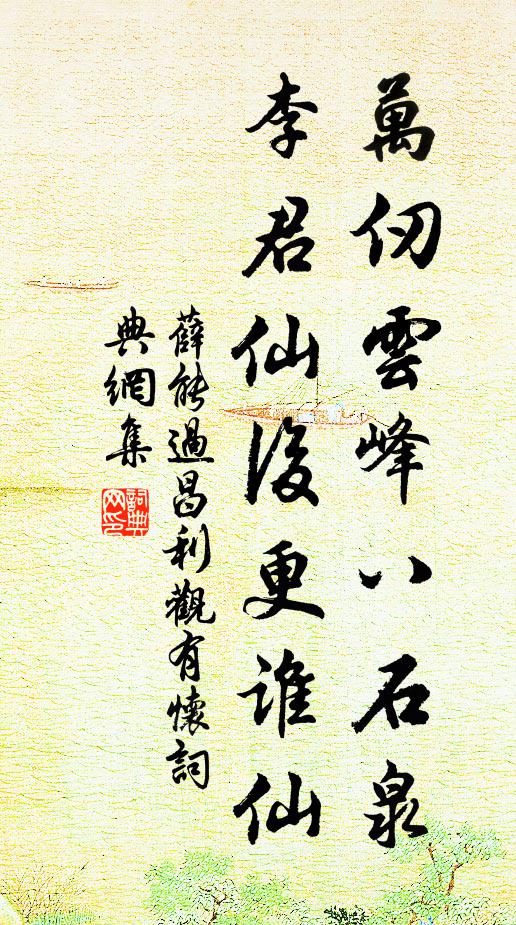 萬仞雲峰八石泉
李君仙後更誰仙
薛能過昌利觀有懷詞
典網集
詞典網印